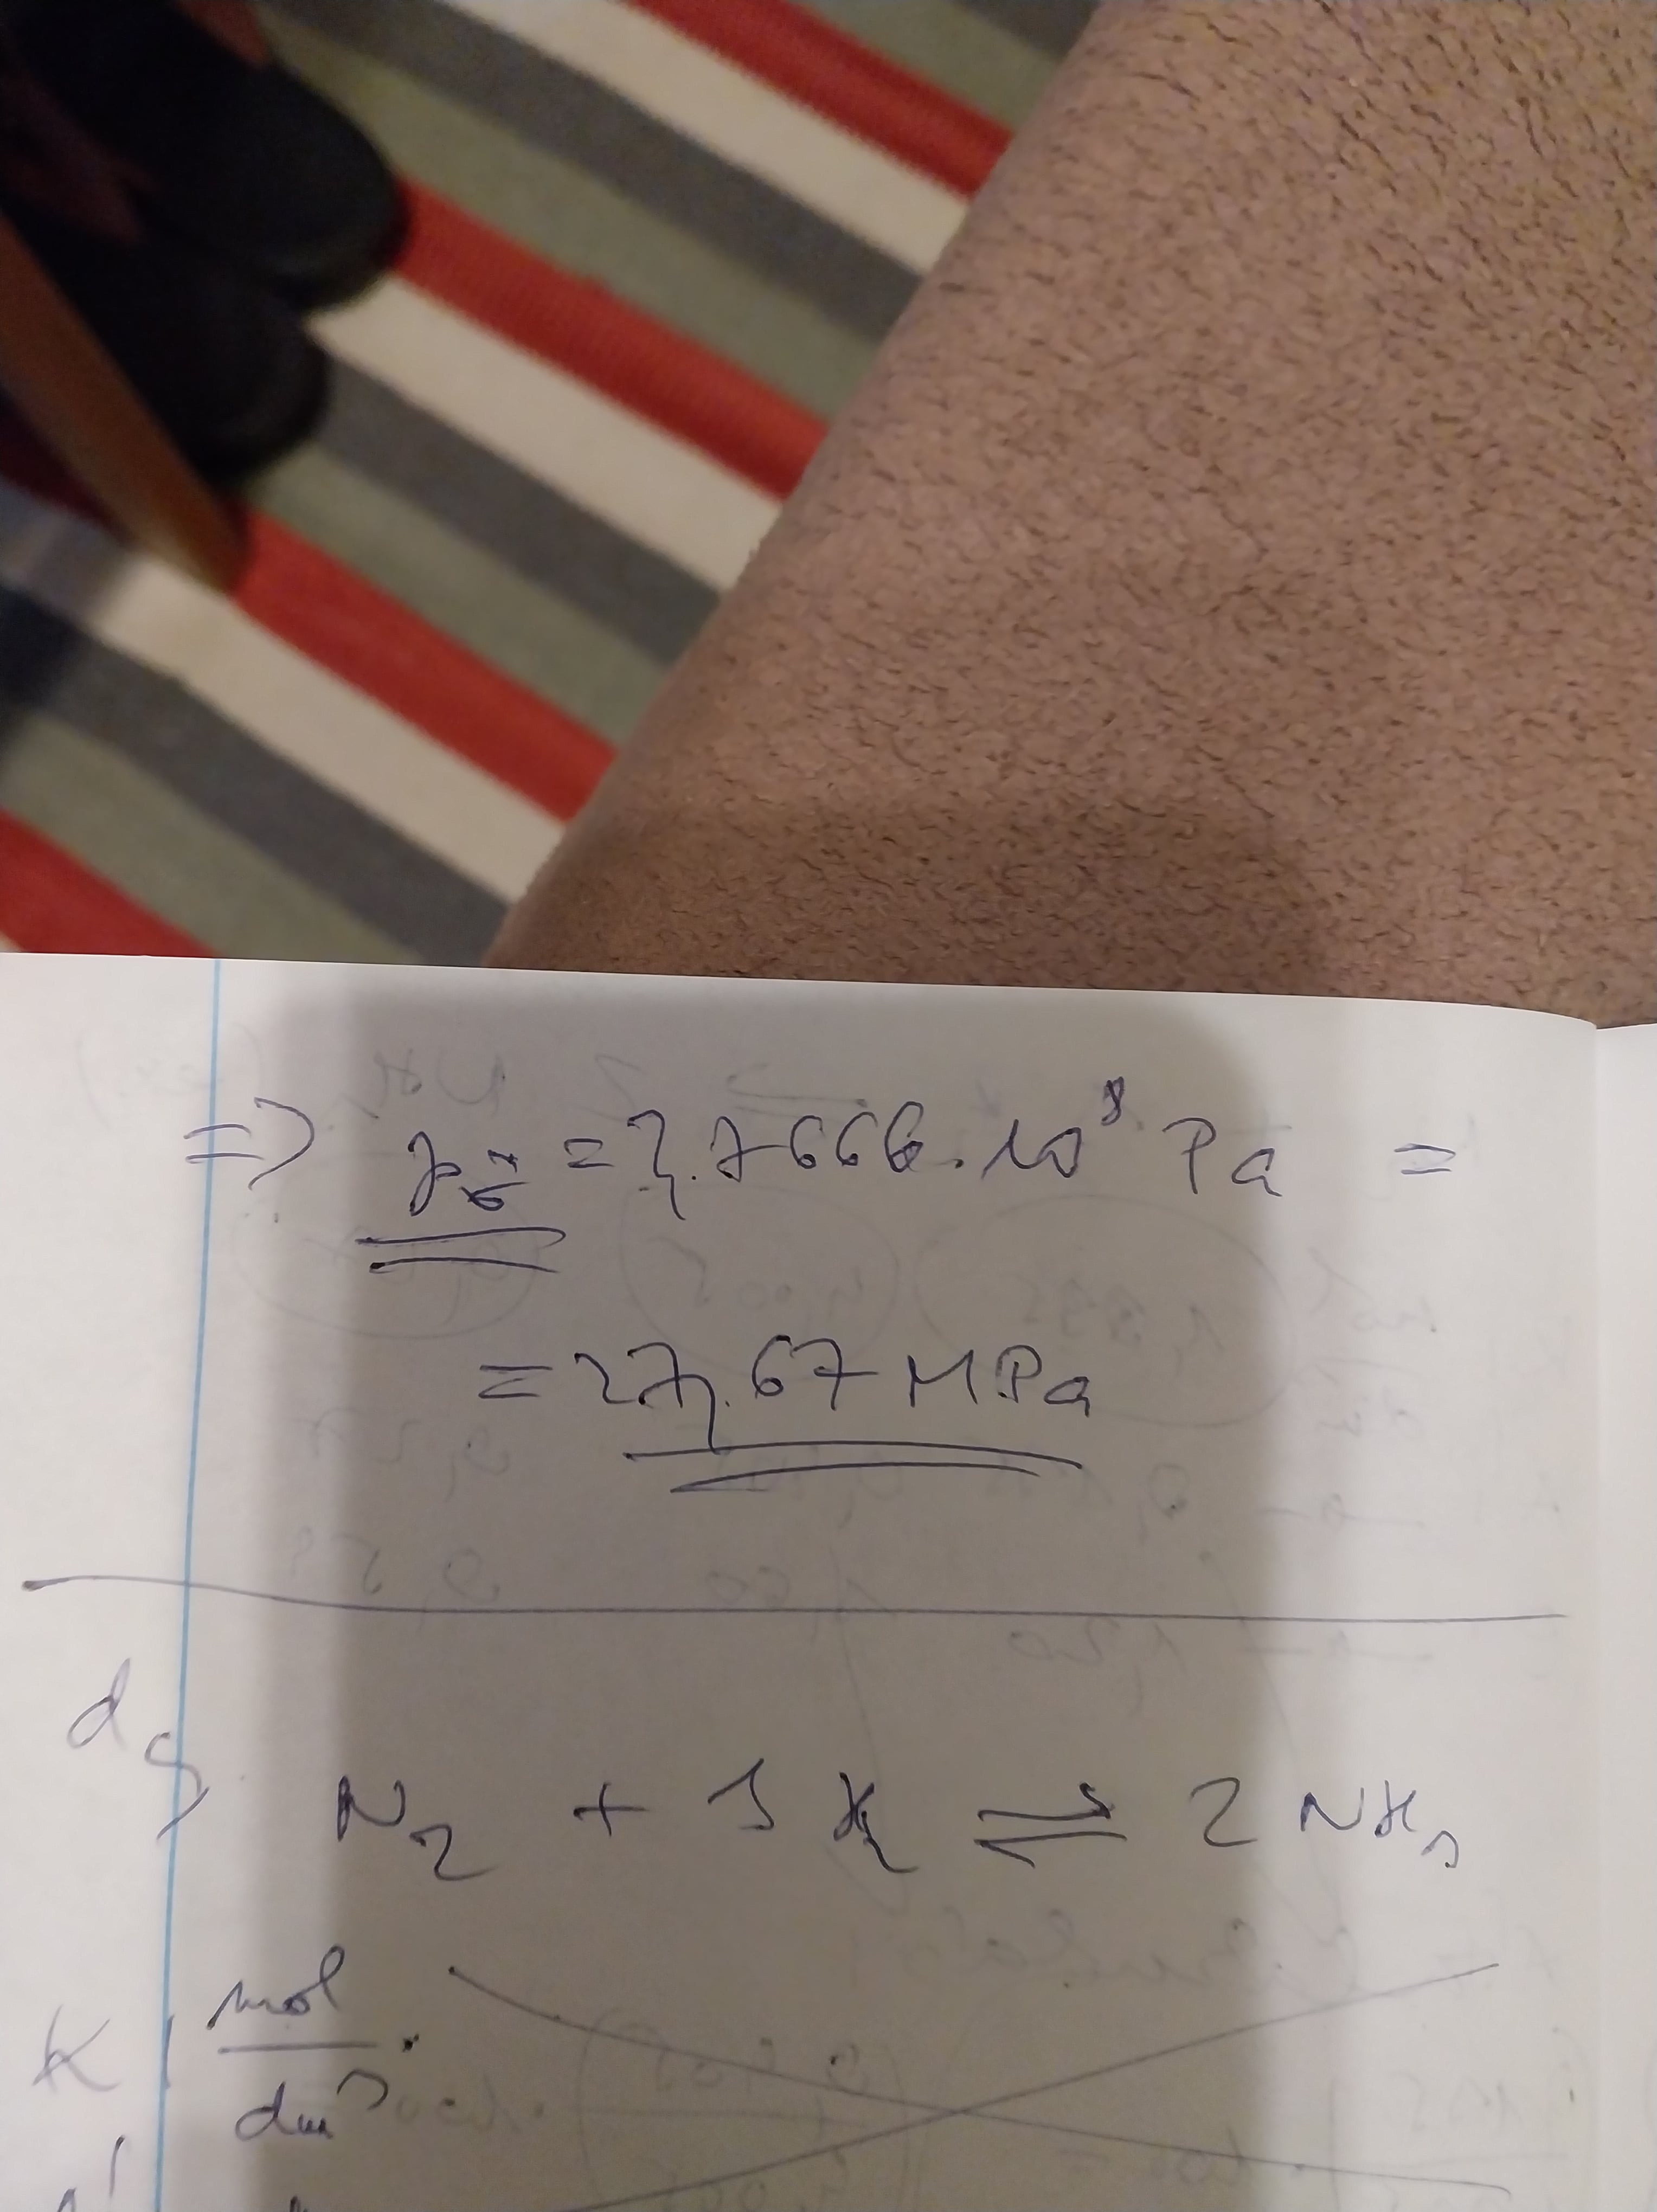 => = 2,7666 · 10⁸ Pa =
= 27,67 MPa
d,
N₂ + 3 H₂ ⇌ 2 NH₃
K | mol
dm³